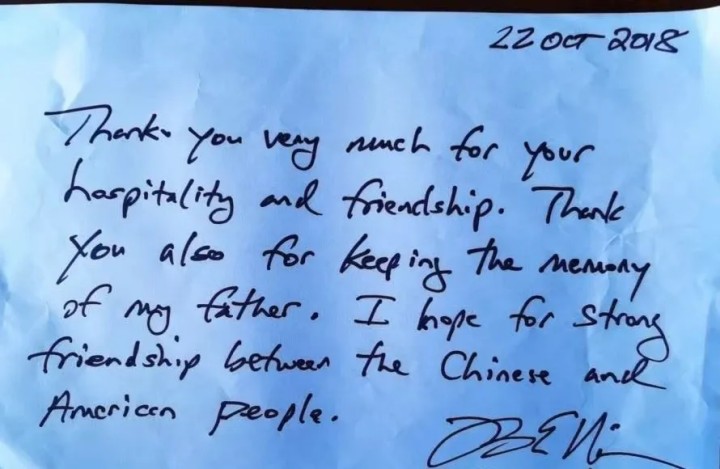 22 OCT 2018
Thank you very much for your
hospitality and friendship. Thank
you also for keeping the memory
of my father. I hope for strong
friendship between the Chinese and
American people.